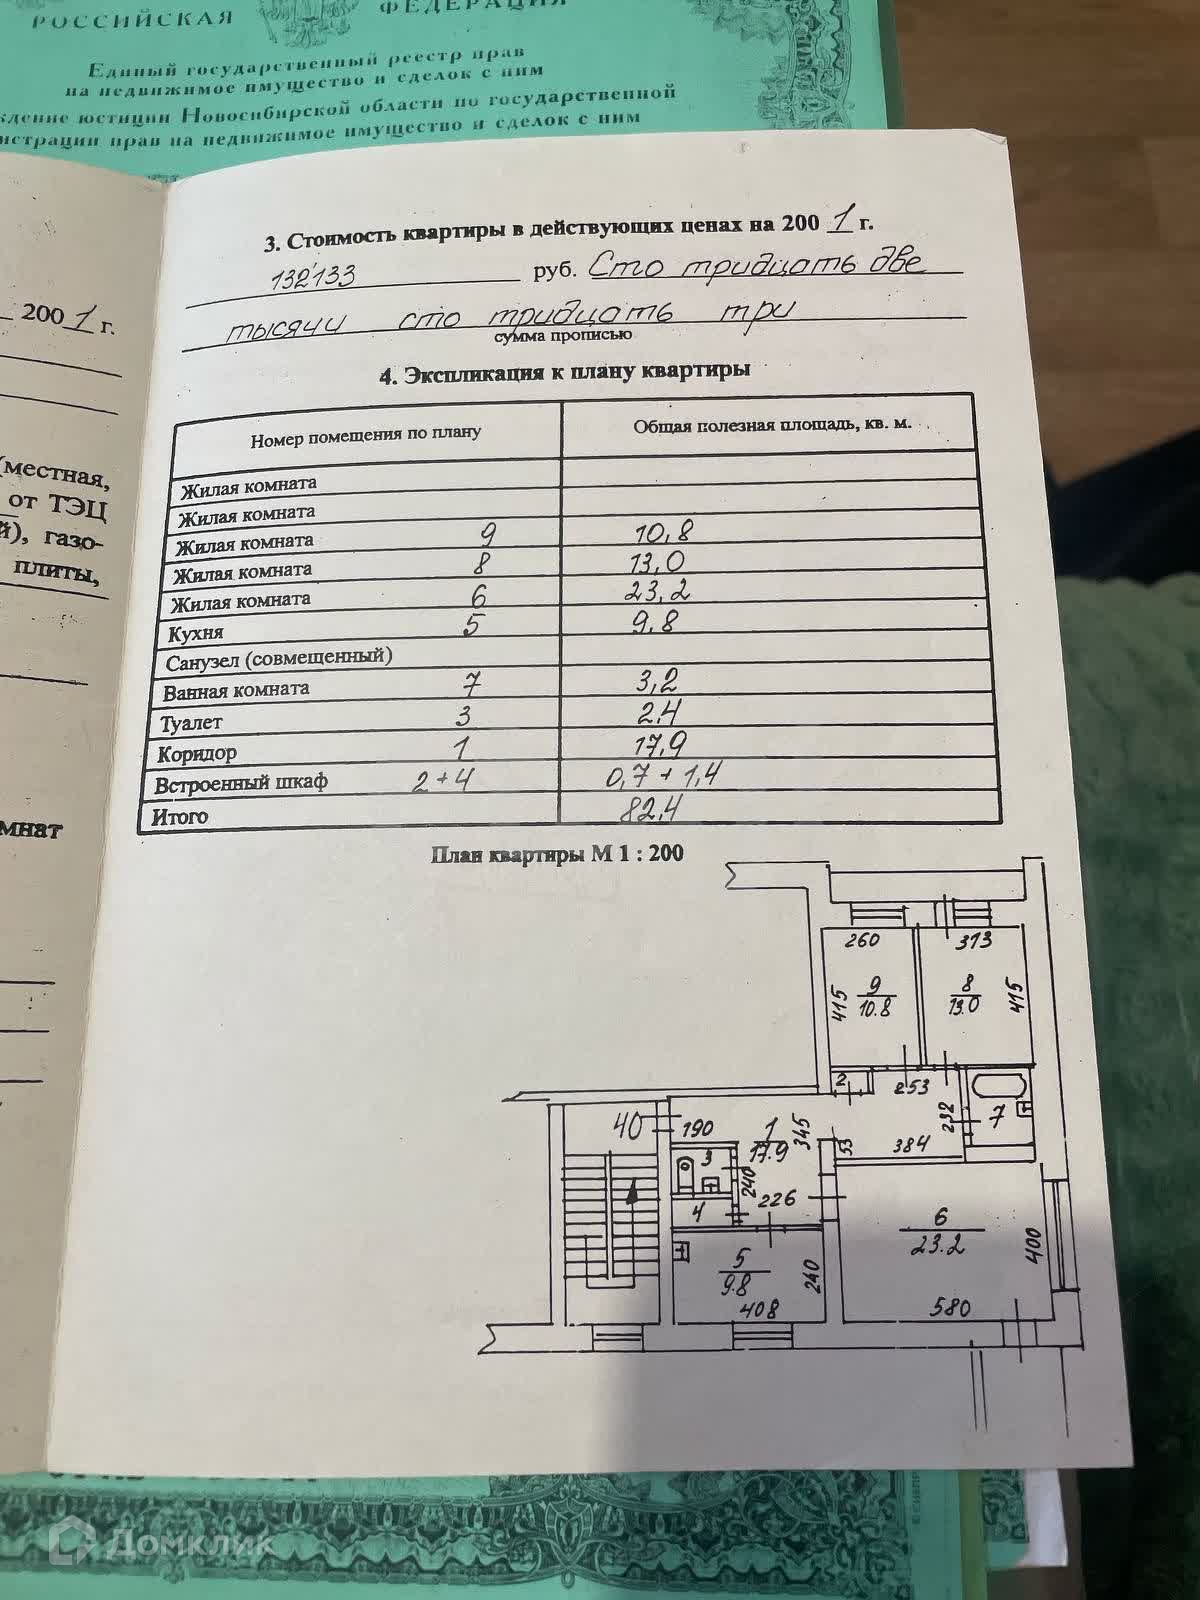 РОССИЙСКАЯ ФЕДЕРАЦИЯ
Единый государственный реестр прав
на недвижимое имущество и сделок с ним
ждение юстиции Новосибирской области по государственной
истрации прав на недвижимое имущество и сделок с ним
200 1 г.
(местная,
от ТЭЦ
й), газо-
плиты,
мнат
3. Стоимость квартиры в действующих ценах на 200 1 г.
132133 руб. Сто тридцать две
тысячи сто тридцать три
сумма прописью
4. Экспликация к плану квартиры
Номер помещения по плану Общая полезная площадь, кв. м.
Жилая комната
Жилая комната
Жилая комната 9 10,8
Жилая комната 8 13,0
Жилая комната 6 23,2
Кухня 5 9,8
Санузел (совмещенный)
Ванная комната 7 3,2
Туалет 3 2,4
Коридор 1 17,9
Встроенный шкаф 2+4 0,7 + 1,4
Итого 82,4
План квартиры М 1 : 200
260 313
415 9 10.8 8 13.0 415
2 253
40 190 1 17.9 345 53 384 232 7
3 240
4 226
6 23.2 400
5 9.8 240
408 580
Домклик